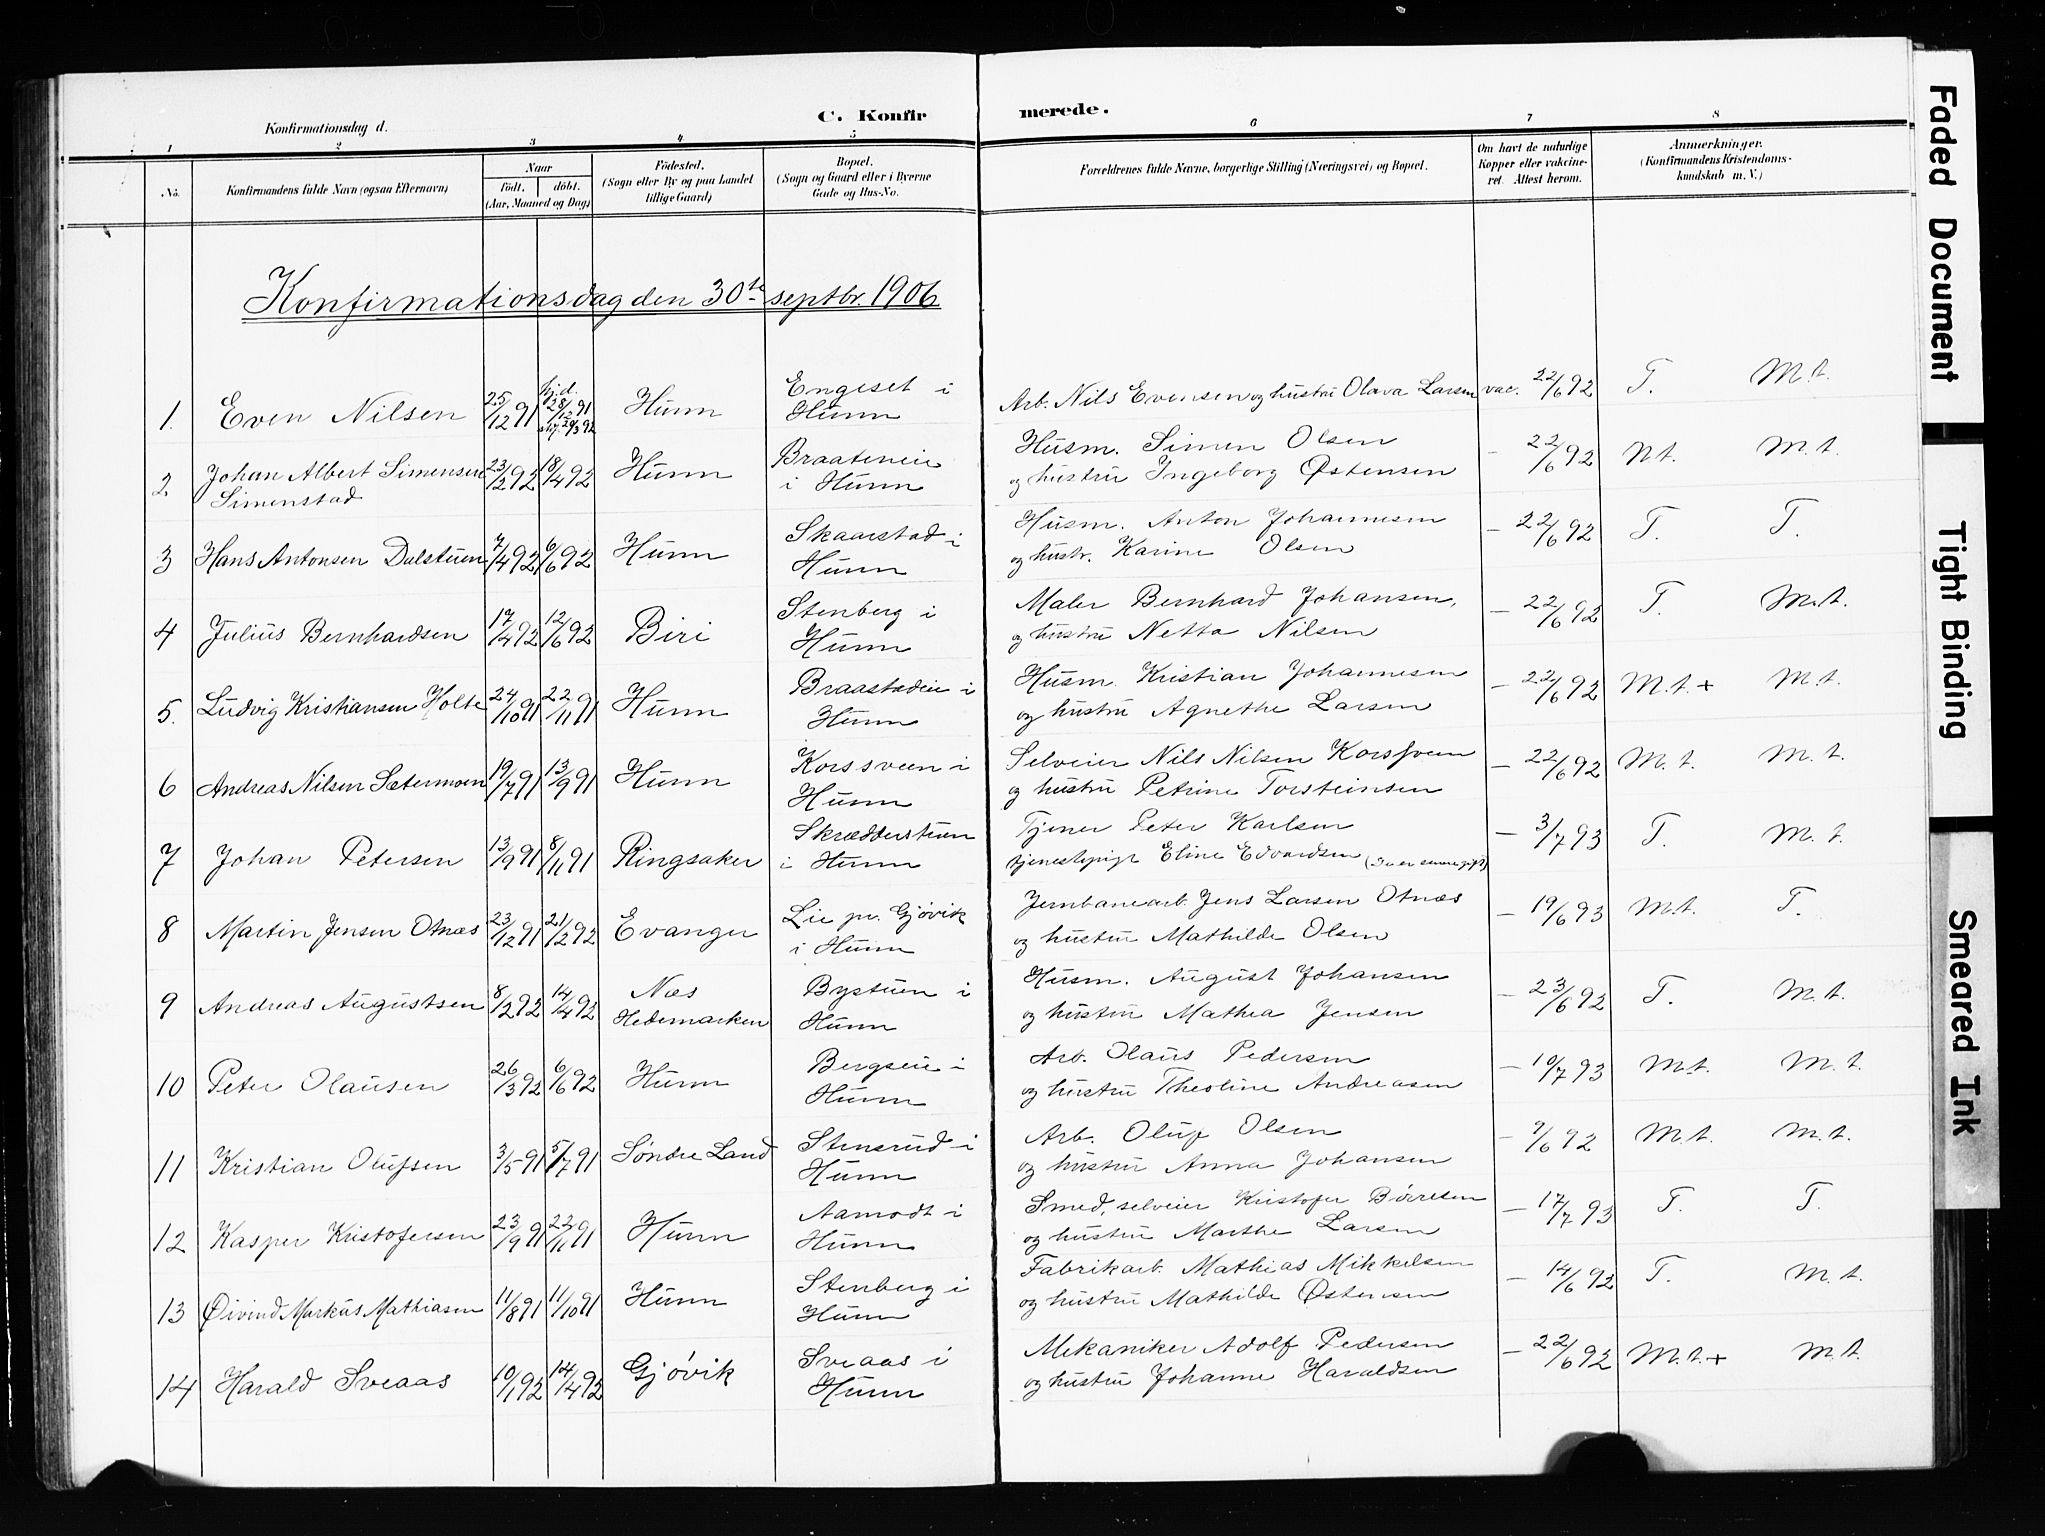 C. Konfirmerede.
Konfirmationsdag d.
1 2 3 4 5 6 7 8
No.
Konfirmandens fulde Navn (ogsaa Efternavn)
Naar
födt. döbt.
(Aar, Maaned og Dag)
Födested.
(Sogn eller By og paa Landet
tillige Gaard)
Bopæl.
(Sogn og Gaard eller i Byerne
Gade og Hus-No.
Forældrenes fulde Navne, borgerlige Stilling (Næringsvei) og Bopæl.
Om havt de naturlige
Kopper eller vaccine-
ret. Attest herom.
Anmærkninger.
(Konfirmandens Kristendoms-
kundskab m. V.)
Konfirmationsdag den 30te septbr. 1906
1. Even Nilsen 25/12 91 hj.d. 28/12 91 Hunn Engeset i Hunn Arb. Nils Evensen og hustru Olava Larsen vac. 22/6 92 T. M.t.
2. Johan Albert Simensen 23/2 92 18/4 92 Hunn Braateneie Husm. Simen Olsen - 22/6 92 Nt. M.t.
Simenstad i Hunn og hustru Ingeborg Østensen
3 Hans Antonsen Dalstuen 7/4 92 6/6 92 Hunn Skaarstad i Husm. Anton Johannesen - 22/6 92 T. T.
Hunn og hustr. Karine Olsen
4 Julius Bernhardsen 17/4 92 12/6 92 Biri Stenberg i Maler Bernhard Johansen, - 22/6 92 T. M.t.
Hunn og hustru Netta Nilsen
5. Ludvig Kristiansen Holte 24/10 91 22/11 91 Hunn Braastadeie i Husm. Kristian Johannesen - 22/6 92 M.t.+ M.t.
Hunn og hustru Agnethe Larsen
6 Andreas Nilsen Sætermoen 19/7 91 13/9 91 Hunn Korssveen i Selveier Nils Nilsen Korssveen - 22/6 92 M.t. M.t.
Hunn og hustru Petrine Torsteinsen
7 Johan Petersen 13/9 91 8/11 91 Ringsaker Skrædderstuen Tjener Peter Karlsen - 3/7 93 T. M.t.
i Hunn tjenestepige Eline Edvardsen
8 Martin Jensen Otnæs 23/12 91 21/2 92 Evanger Lie pr. Gjøvik Jernbanearb. Jens Larsen Otnæs - 19/6 93 M.t. T.
i Hunn og hustru Mathilde Olsen
9 Andreas Augustsen 8/2 92 14/4 92 Næs Bystuen i Husm. August Johansen - 23/6 92 T. M.t.
Hedemarken Hunn og hustru Mathea Jensen
10 Peter Olausen 26/3 92 6/6 92 Hunn Bergseie i Arb. Olaus Pedersen - 10/7 93 M.t. M.t.
Hunn og hustru Theoline Andreasen
11 Kristian Olufsen 3/5 91 5/7 91 Søndre Land Stensrud i Arb. Oluf Olsen - 9/6 92 M.t. M.t.
Hunn og hustru Anna Johansen
12 Kasper Kristofersen 23/9 91 22/11 91 Hunn Aamodt i Smed, selveier Kristofer Børresen - 17/7 93 T. T.
Hunn og hustru Marthe Larsen
13 Øivind Markus Mathiasen 11/8 91 11/10 91 Hunn Stenberg i Fabrikarb. Mathias Mikkelsen - 14/6 92 T. M.t.
Hunn og hustru Mathilde Østensen
14 Harald Sveaas 10/1 92 14/4 92 Gjøvik Sveaas i Mekaniker Adolf Pedersen - 22/6 92 M.t.+ M.t.
Hunn og hustru Johanne Haraldsen
Faded Document
Tight Binding
Smeared Ink